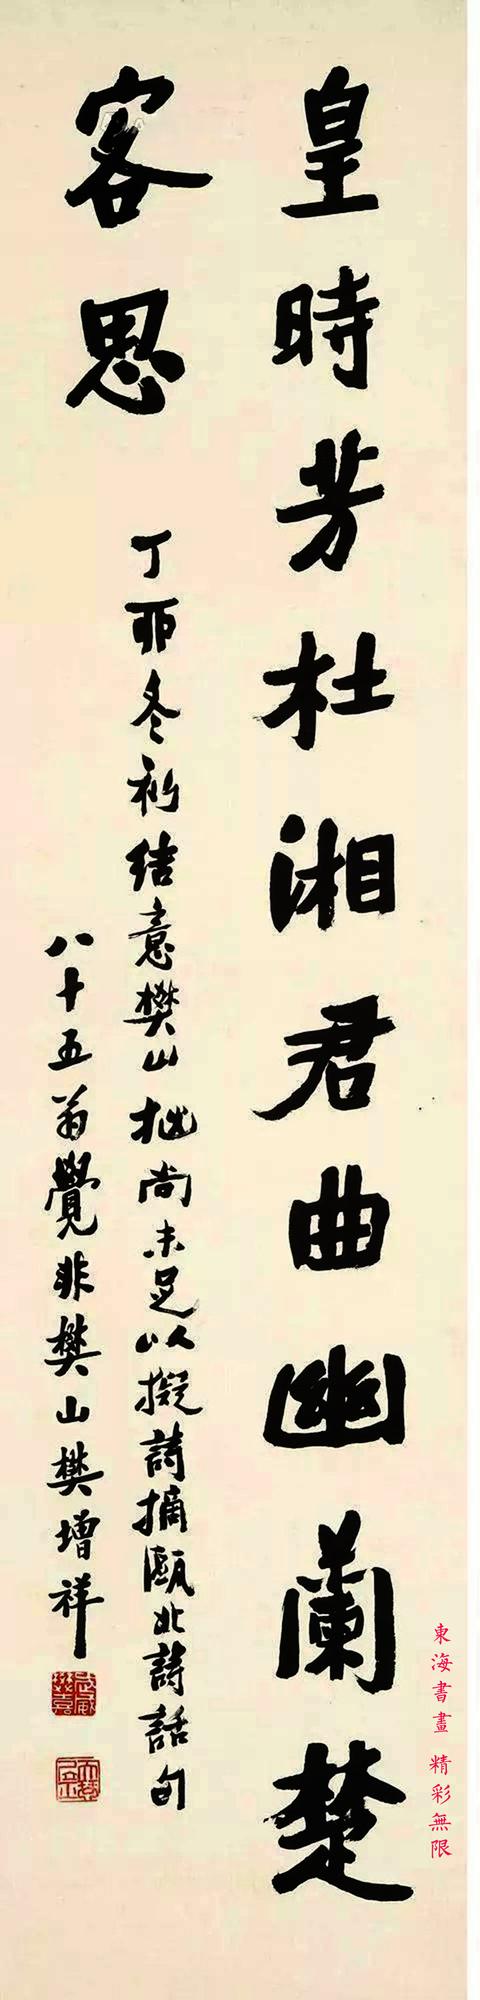 皇時芳杜湘君曲幽蘭楚
客思
丁卯冬初結意樊山拙尚未足以擬詩摘甌北詩話句
八十五翁覺非樊山樊增祥
東海書畫 精彩無限